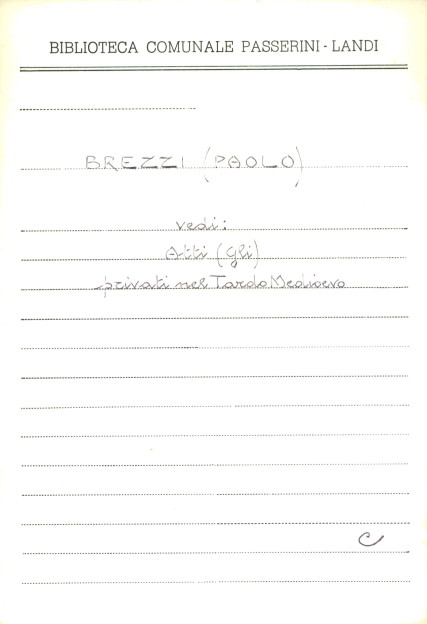 BIBLIOTECA COMUNALE PASSERINI - LANDI
BREZZI (PAOLO)
vedi:
Atti (Gli)
privati nel Tardo Medioevo
C